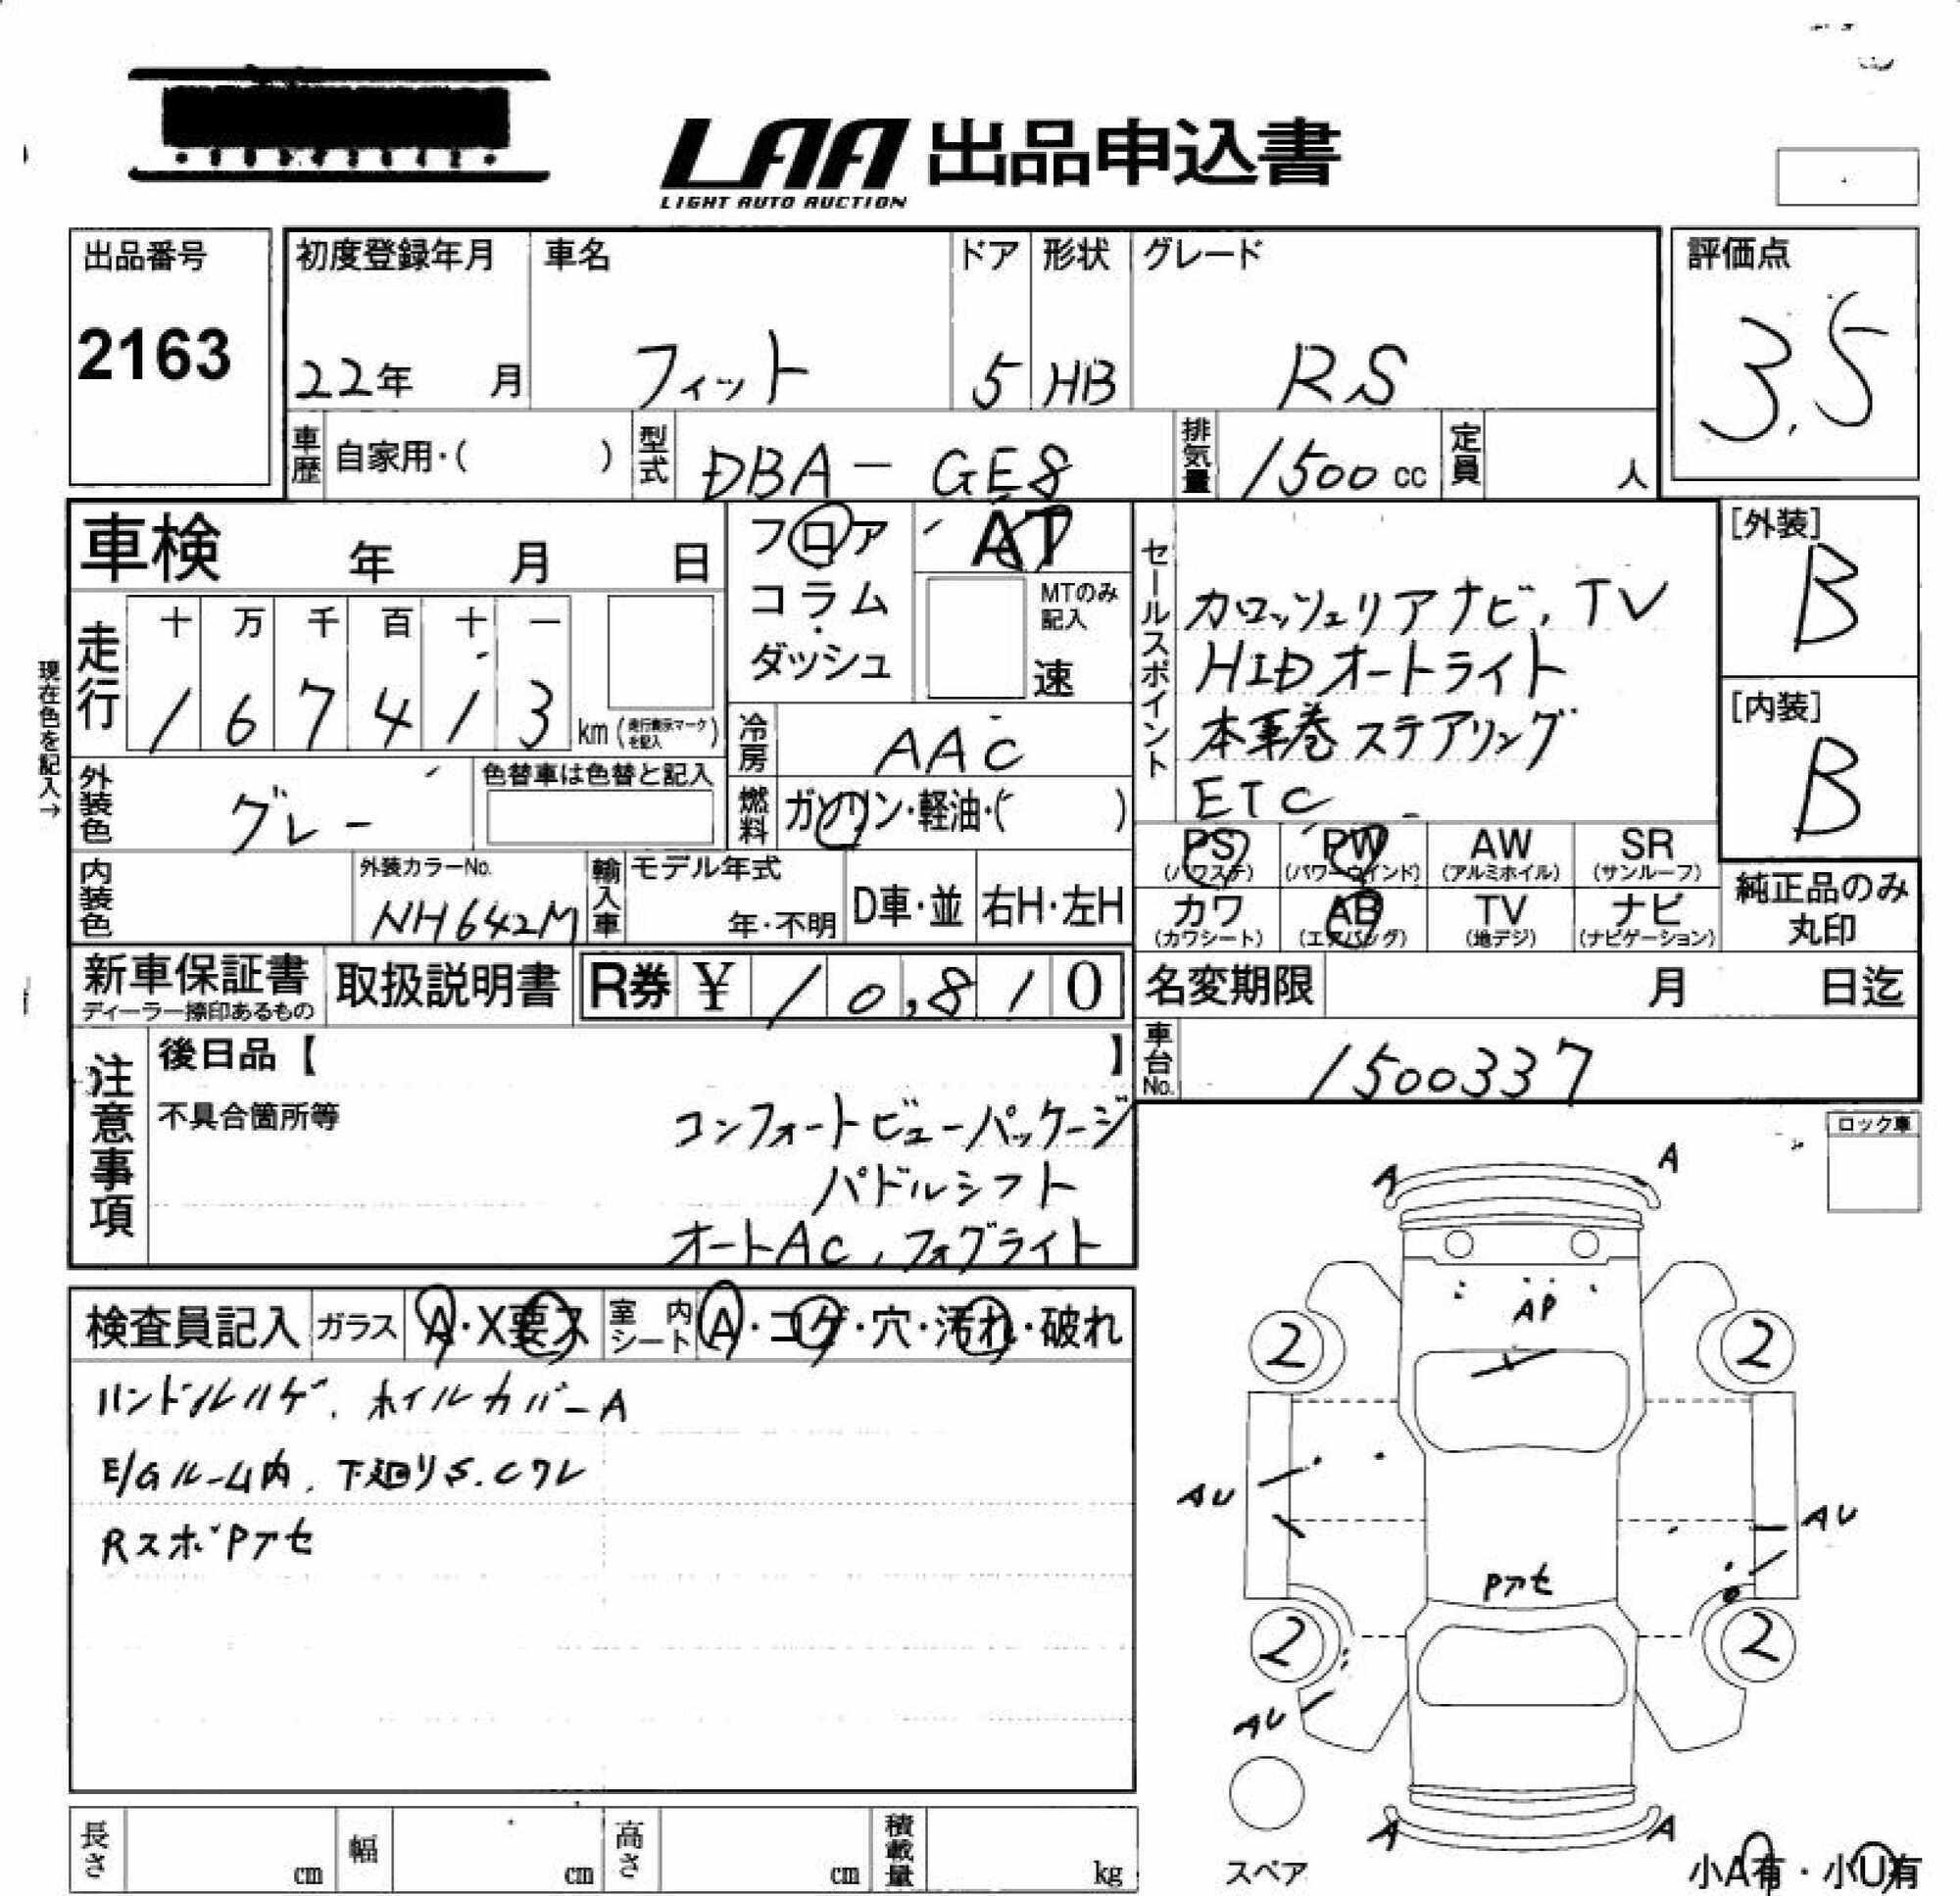 LAA 出品申込書
LIGHT AUTO AUCTION
出品番号
2163
初度登録年月
22年 月
車名
フィット
ドア
5
形状
HB
グレード
RS
評価点
3.5
車歴
自家用・( )
型式
DBA-GE8
排気量
1500 cc
定員
人
車検 年 月 日
フロア
コラム・
ダッシュ
AT
MTのみ
記入
速
セールスポイント
カロッツェリアナビ、TV
HIDオートライト
本革巻ステアリング
ETC
[外装]
B
[内装]
B
現在色を記入→
走行
十 万 千 百 十 一
1 6 7 4 1 3 km (走行表示マークを記入)
冷房
AAC
外装色
グレー
色替車は色替と記入
燃料
ガソリン・軽油・( )
PS PW AW SR
(パワステ) (パワーウインド) (アルミホイル) (サンルーフ)
カワ AB TV ナビ
(カワシート) (エアバッグ) (地デジ) (ナビゲーション)
純正品のみ
丸印
内装色
外装カラーNo.
NH642M
輸入車
モデル年式
年・不明
D車・並
右H・左H
新車保証書
ディーラー捺印あるもの
取扱説明書
R券 ¥ 10,810
名変期限 月 日迄
車台No.
1500337
注意事項
後日品【 】
不具合箇所等
コンフォートビューパッケージ
パドルシフト
オートAC、フォグライト
ロック車
検査員記入
ガラス
A・X要ス
室内シート
A・コゲ・穴・汚れ・破れ
ハンドルハゲ、ホイルカバーA
E/Gルーム内、下廻りS.Cフレ
RスポPアセ
A A
AP
2 2
AU AU
Pアセ
2 2
AU
A A
スペア
小A有・小U有
長さ cm
幅 cm
高さ cm
積載量 kg